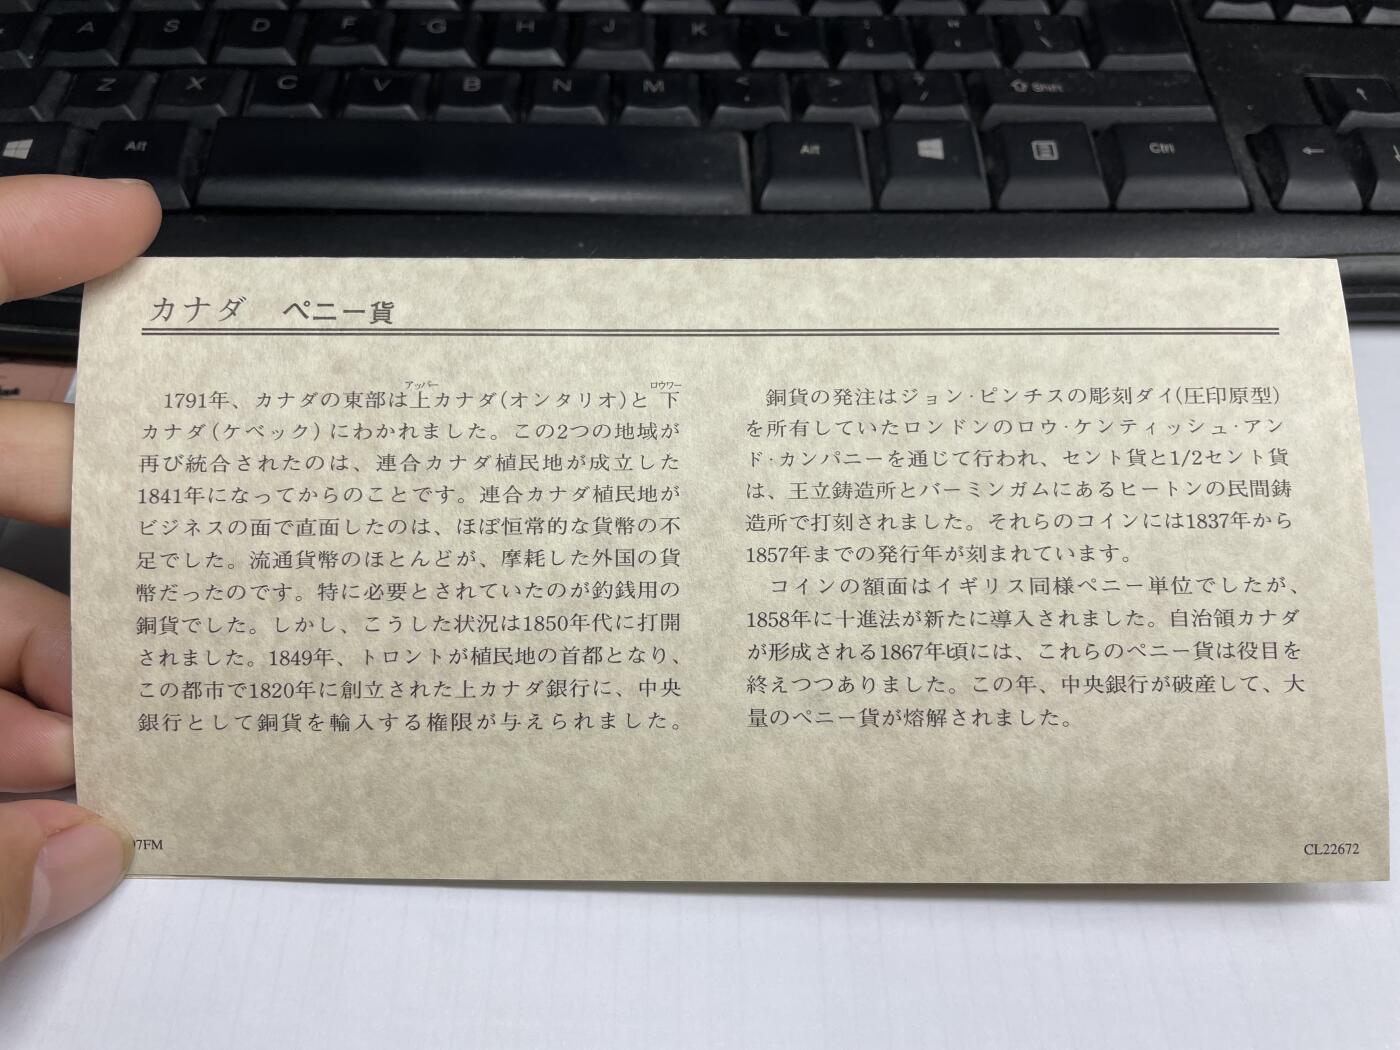 A S D F G H J K L
Z X C V B N M < >
Shift
Alt Alt Ctrl
カナダ ペニー貨
アッパー ロウワー
1791年、カナダの東部は上カナダ(オンタリオ)と下
カナダ(ケベック)にわかれました。この2つの地域が
再び統合されたのは、連合カナダ植民地が成立した
1841年になってからのことです。連合カナダ植民地が
ビジネスの面で直面したのは、ほぼ恒常的な貨幣の不
足でした。流通貨幣のほとんどが、摩耗した外国の貨
幣だったのです。特に必要とされていたのが釣銭用の
銅貨でした。しかし、こうした状況は1850年代に打開
されました。1849年、トロントが植民地の首都となり、
この都市で1820年に創立された上カナダ銀行に、中央
銀行として銅貨を輸入する権限が与えられました。
銅貨の発注はジョン·ピンチスの彫刻ダイ(圧印原型)
を所有していたロンドンのロウ·ケンティッシュ·アン
ド·カンパニーを通じて行われ、セント貨と1/2セント貨
は、王立鋳造所とバーミンガムにあるヒートンの民間鋳
造所で打刻されました。それらのコインには1837年から
1857年までの発行年が刻まれています。
コインの額面はイギリス同様ペニー単位でしたが、
1858年に十進法が新たに導入されました。自治領カナダ
が形成される1867年頃には、これらのペニー貨は役目を
終えつつありました。この年、中央銀行が破産して、大
量のペニー貨が熔解されました。
97FM
CL22672